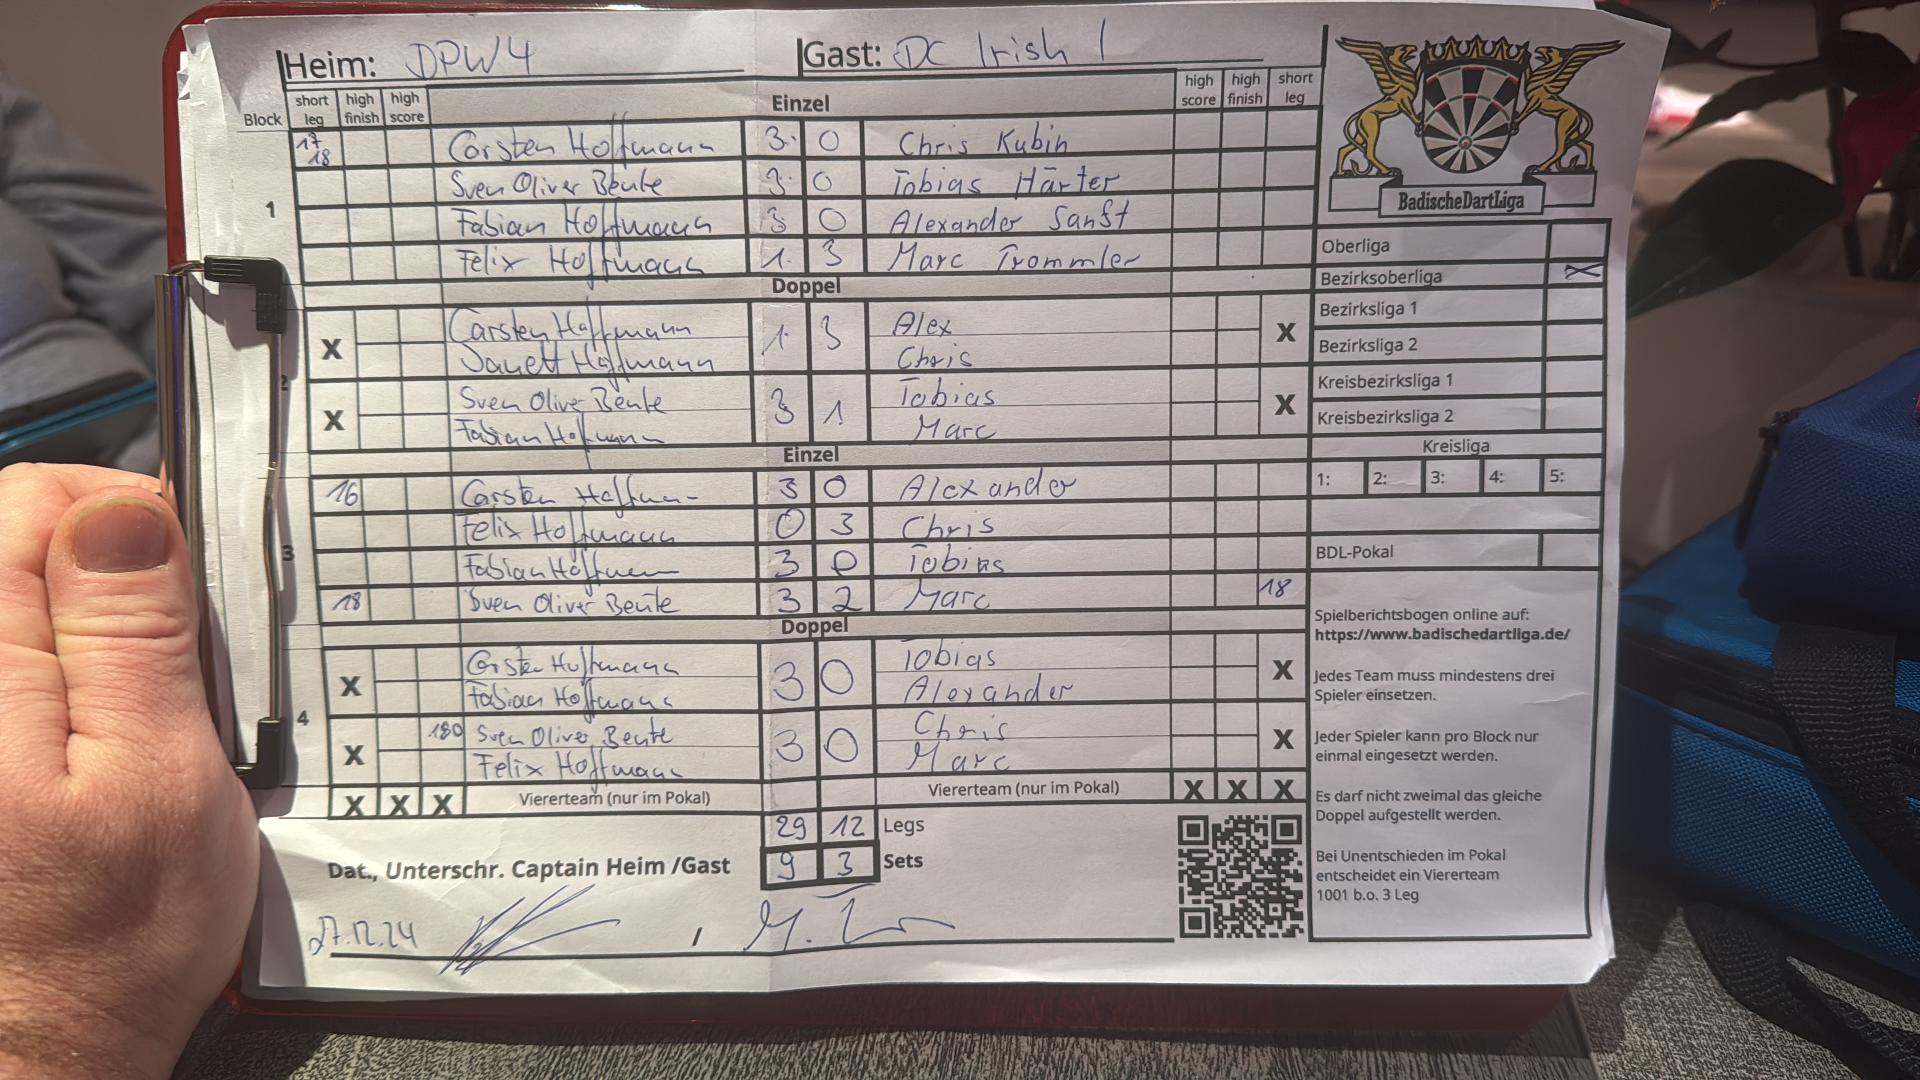 Heim: DPW4 Gast: DC Irish 1
Block short leg high finish high score Einzel high score high finish short leg
1
17 18 Carsten Hoffmann 3 0 Chris Kubin
Sven Oliver Beute 3 0 Tobias Härter
Fabian Hoffmann 3 0 Alexander Sanft
Felix Hoffmann 1 3 Marc Trommler
Doppel
2
X Carsten Hoffmann 1 3 Alex X
Janett Hoffmann Chris
X Sven Oliver Beute 3 1 Tobias X
Fabian Hoffmann Marc
Einzel
3
16 Carsten Hoffman 3 0 Alexander
Felix Hoffmann 0 3 Chris
Fabian Hoffmann 3 0 Tobias
18 Sven Oliver Beute 3 2 Marc 18
Doppel
4
X Carsten Hoffmann 3 0 Tobias X
Fabian Hoffmann Alexander
X 180 Sven Oliver Beute 3 0 Chris X
Felix Hoffmann Marc
X X X Viererteam (nur im Pokal) Viererteam (nur im Pokal) X X X
29 12 Legs
9 3 Sets
Dat., Unterschr. Captain Heim /Gast
27.12.24 /
BadischeDartLiga
Oberliga
Bezirksoberliga X
Bezirksliga 1
Bezirksliga 2
Kreisbezirksliga 1
Kreisbezirksliga 2
Kreisliga
1: 2: 3: 4: 5:
BDL-Pokal
Spielberichtsbogen online auf:
https://www.badischedartliga.de/
Jedes Team muss mindestens drei
Spieler einsetzen.
Jeder Spieler kann pro Block nur
einmal eingesetzt werden.
Es darf nicht zweimal das gleiche
Doppel aufgestellt werden.
Bei Unentschieden im Pokal
entscheidet ein Viererteam
1001 b.o. 3 Leg